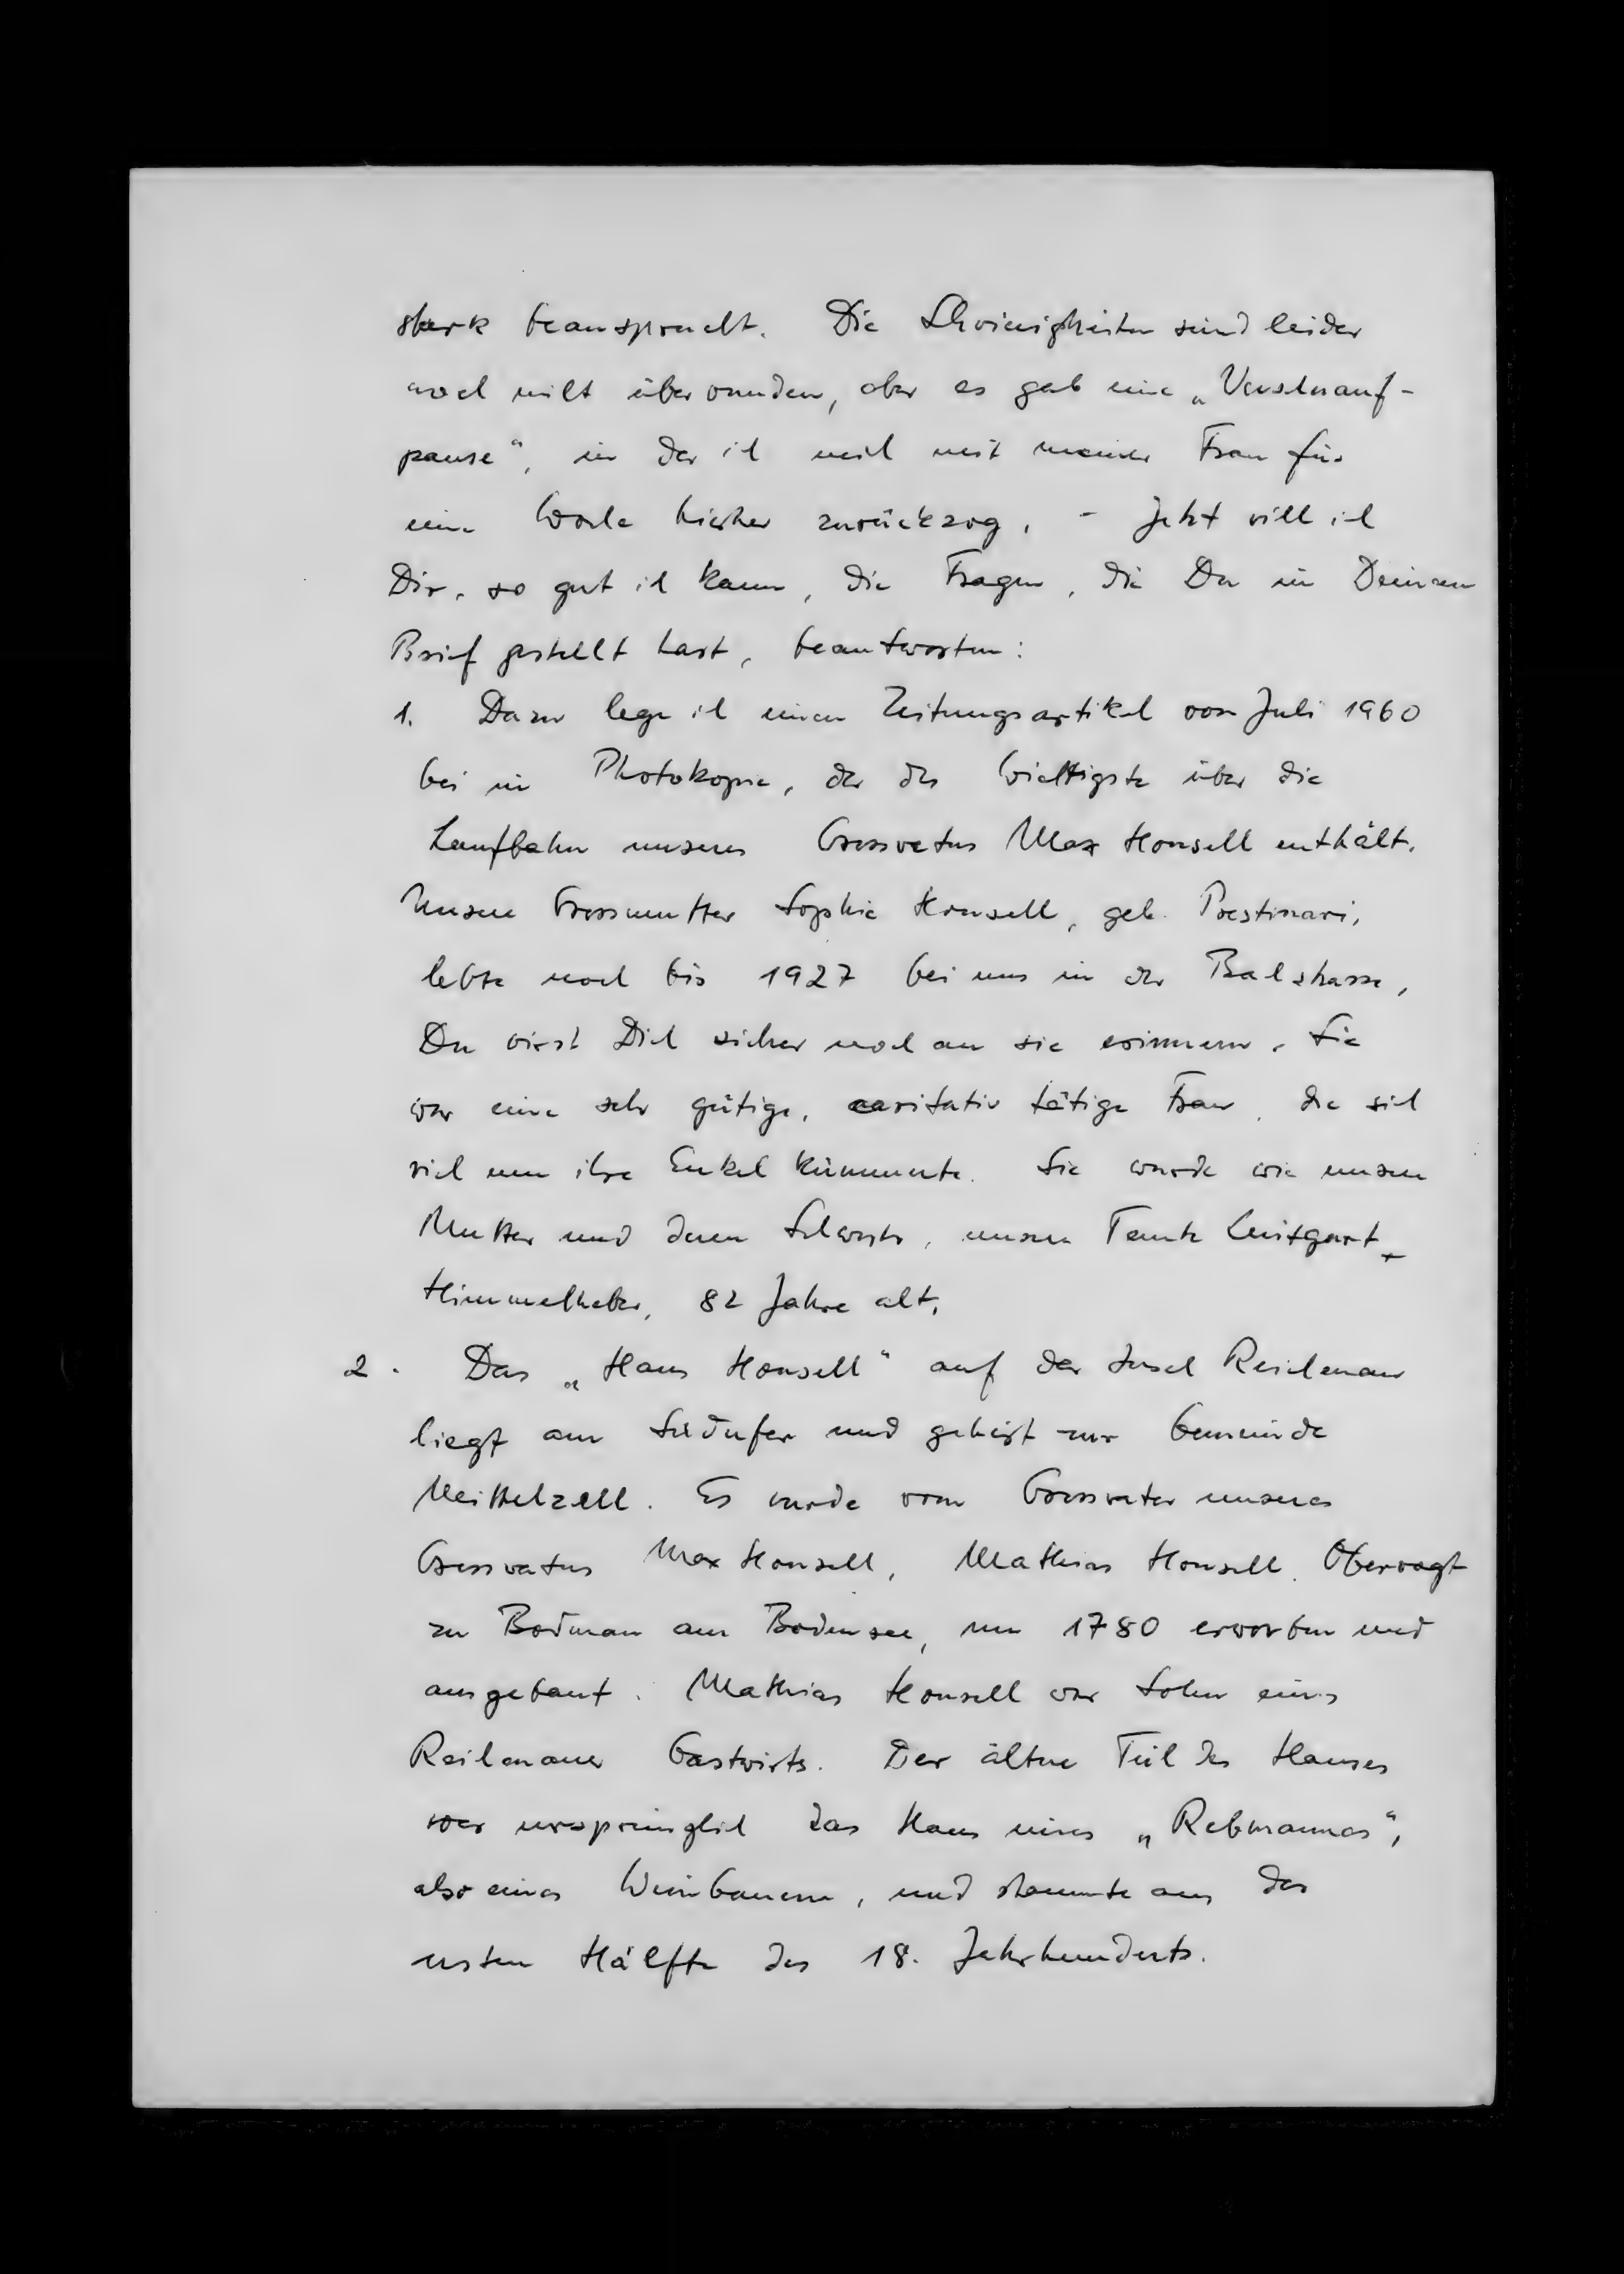 stark beansprucht. Die Schwierigkeiten sind leider
noch nicht überwunden, aber es gab eine „Verschnauf-
pause“, in der ich mich mit meiner Frau für
eine Woche hierher zurückzog. - Jetzt will ich
Dir, so gut ich kann, die Fragen, die Du in Deinem
Brief gestellt hast, beantworten:
1. Dazu lege ich einen Zeitungsartikel vom Juli 1960
bei in Photokopie, der das Wichtigste über die
Laufbahn unseres Grossvaters Max Honsell enthält.
Unsere Grossmutter Sophie Honsell, geb. Prestinari,
lebte noch bis 1927 bei uns in der Bachstrasse,
Du wirst Dich sicher noch an sie erinnern. Sie
war eine sehr gütige, caritativ tätige Frau, die sich
viel um ihre Enkel kümmerte. Sie wurde wie unsere
Mutter und deren Schwester, unsere Tante Luitgart
Himmelheber, 82 Jahre alt.
2. Das „Haus Honsell“ auf der Insel Reichenau
liegt am Südufer und gehört zur Gemeinde
Mittelzell. Es wurde vom Grossvater unseres
Grossvaters Max Honsell, Mathias Honsell, Obervogt
zu Bodman am Bodensee, um 1780 erworben und
ausgebaut. Mathias Honsell war Sohn eines
Reichenauer Gastwirts. Der ältere Teil des Hauses
war ursprünglich das Haus eines „Rebmannes“,
also eines Weinbauern, und stammte aus der
ersten Hälfte des 18. Jahrhunderts.